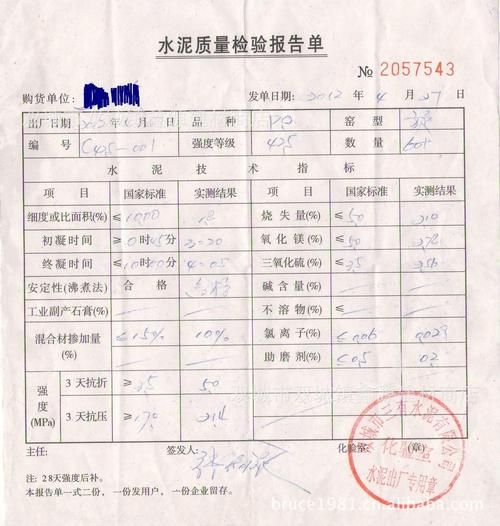 水泥质量检验报告单
№ 2057543
购货单位: 发单日期: 2012 年 4 月 27 日
出厂日期 2012 年 4 月 日 品种 P.O 窑型
编号 C425-001 强度等级 425 数量 60t
水泥技术指标
项目 国家标准 实测结果 项目 国家标准 实测结果
细度或比面积(%) ≤ 10.00 烧失量(%) ≤ 5.0 2.10
初凝时间 ≥ 0时45分 2:20 氧化镁(%) ≤ 5.0
终凝时间 ≤ 10时00分 4:05 三氧化硫(%) ≤ 3.5
安定性(沸煮法) 合格 合格 碱含量(%)
工业副产石膏(%) 不溶物(%) ≤
混合材掺加量(%) ≤15% 10% 氯离子(%) ≤ 0.06 0.029
助磨剂(%) ≤ 0.5 0.2
强度(MPa) 3天抗折 ≥ 3.5 5.0
3天抗压 ≥ 17.0 21.4
主任: 签发人: 化验室: (章)
城市三 水泥有限公司
化验室
水泥出厂专用章
注: 28天强度后补。
本报告单一式二份,一份发用户,一份企业留存。
bruce1981.cn.alibaba.com